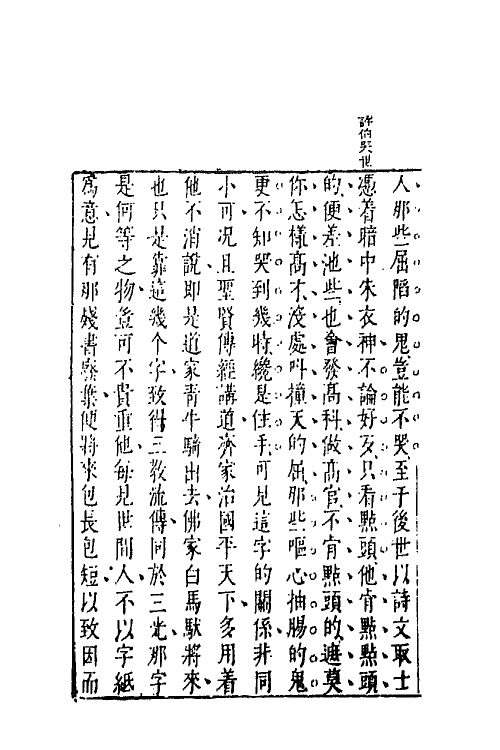 許伯哭世
人那些屈陷的鬼豈能不哭至于後世以詩文取士
憑着暗中朱衣神不論好歹只看點頭他肯點點頭
的便差池些也會發高科做高官不肯點頭的遮莫
你怎樣高才沒處叫撞天的屈那些嘔心抽腸的鬼
更不知哭到幾時纔是住手可見這字的關係非同
小可况且聖賢傳經講道齊家治國平天下多用着
他不消說即是道家青牛騎出去佛家白馬馱將來
也只是靠這幾个字致得三教流傳同於三光那字
是何等之物豈可不貴重他每見世間人不以字紙
爲意見有那殘書廢葉便將來包長包短以致因而